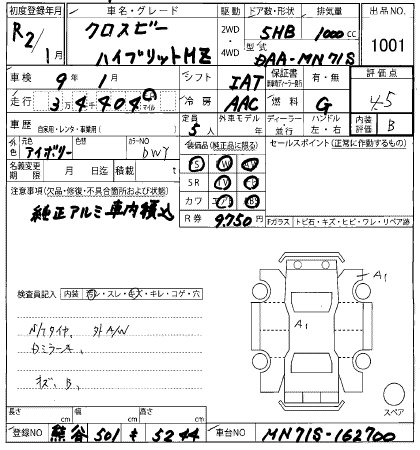 初度登録年月 車名・グレード 駆動 ドア数・形状 排気量 出品NO.
R2/1月 クロスビー ハイブリットMZ 2WD・4WD 5HB 1000cc 1001
型式 DAA-MN71S
車検 9年1月 シフト IAT 保証書 有・無 評価点
走行 3万4404 km マイル 冷房 AAC 燃料 G 4.5
車歴 自家用・レンタ・事業用( ) 定員 5人 外車モデル 年 ディーラー・並行 ハンドル 左・右 内装評価 B
外色 元色 アイボリー 色替 カラーNO ZWY 装備品(純正品に限る) セールスポイント(正常に作動するもの)
名義変更期限 月 日迄 積載 t SR
注意事項(欠品・修復・不具合箇所および状態) カワ
純正アルミ車内積込 R券 9,750円 Fガラス トビ石・キズ・ヒビ・ワレ・リペア跡
A1
A1
検査員記入 内装 ・スレ・キズ・キレ・コゲ・穴
N/Tタイヤ 外A/W
Dミラーキズ
キズ、B、
スペア
長さ cm 幅 cm 高さ cm
登録NO 熊谷 501 も 5244 車台NO MN71S-162700